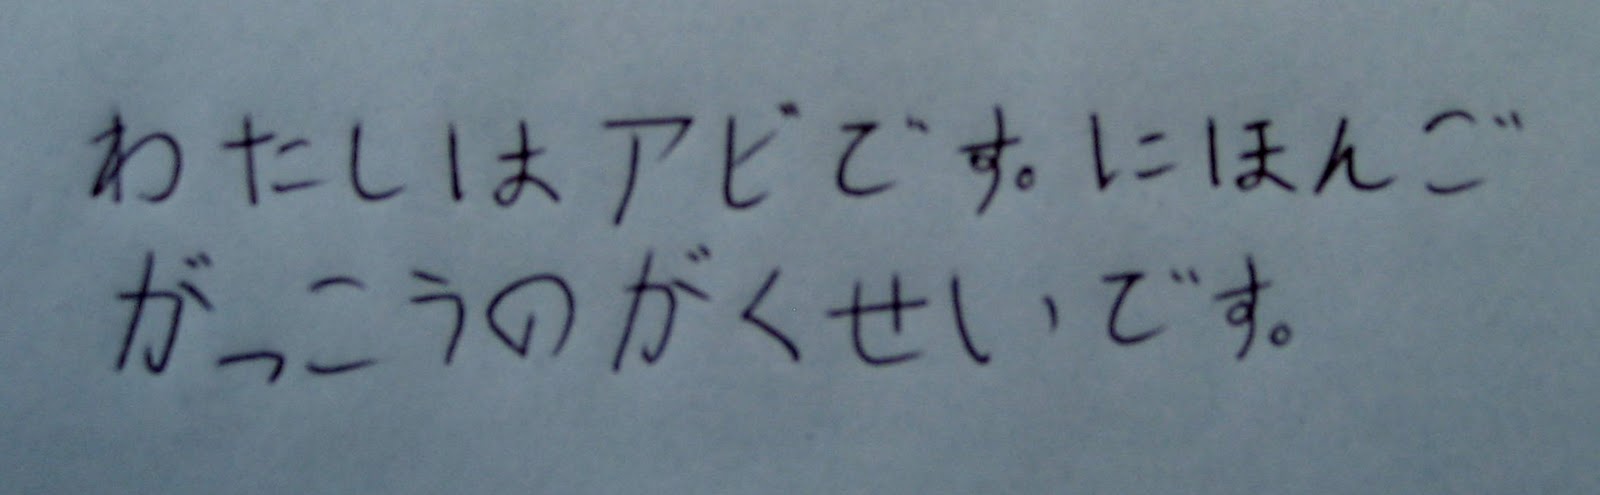 わたしはアビです。にほんご
がっこうのがくせいです。